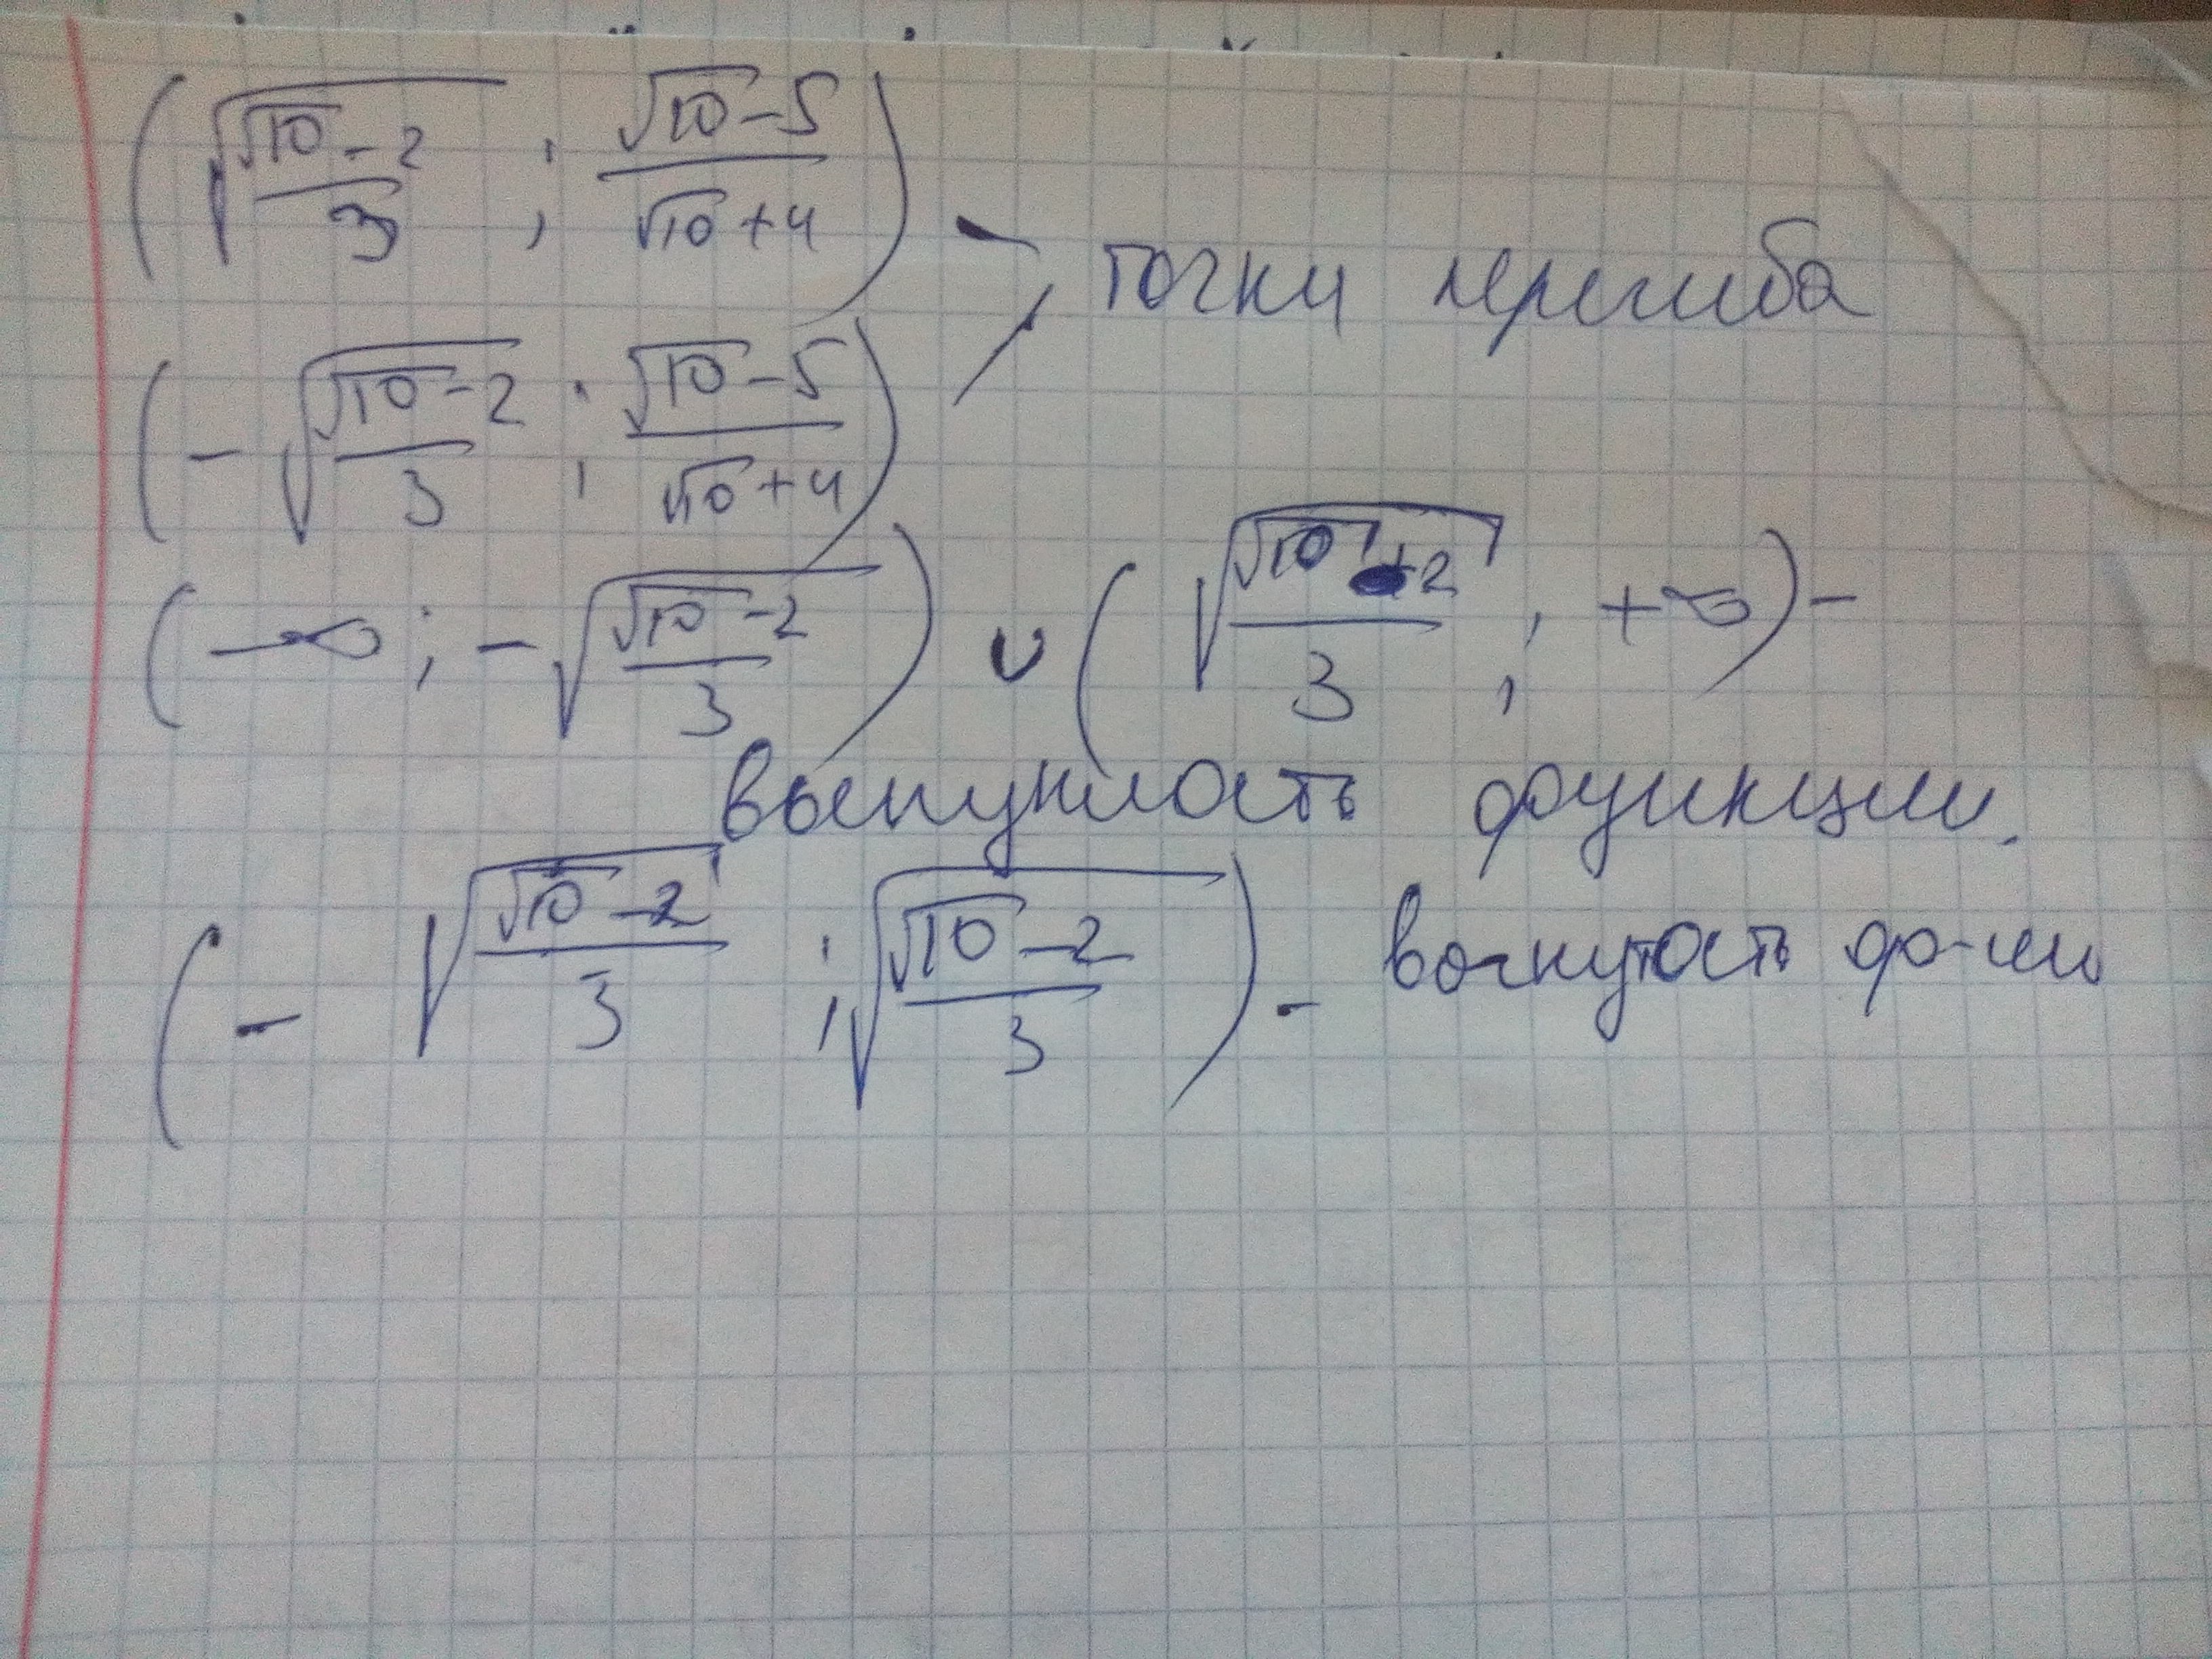 (√((√10-2)/3) ; (√10-5)/(√10+4)) -
точки перегиба
(-√((√10-2)/3) ; (√10-5)/(√10+4))
(-∞ ; -√((√10-2)/3)) ∪ (√((√10+2)/3) ; +∞) -
выпуклость функции.
(-√((√10-2)/3) ; √((√10-2)/3)) - вогнутость ф-ции